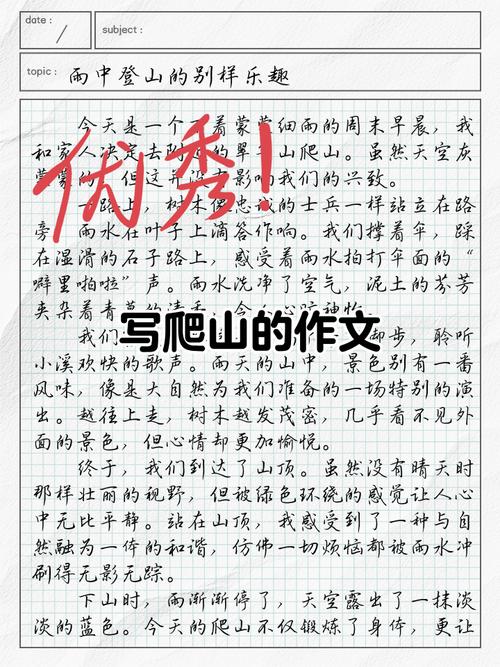 date :
subject :
topic : 雨中登山的别样乐趣
今天是一个下着蒙蒙细雨的周末早晨，我
和家人决定去附近的翠 山爬山。虽然天空灰
蒙蒙的，但这并没有影响我们的兴致。
一路上，树木像忠诚的士兵一样站立在路
旁 雨水在叶子上滴答作响。我们撑着伞，踩
在湿滑的石子路上，感受着雨水拍打伞面的“
噼里啪啦”声。雨水洗净了空气，泥土的芬芳
夹杂着青草的清香，令人心旷神怡
我们 却步，聆听
小溪欢快的歌声。雨天的山中，景色别有一番
风味，像是大自然为我们准备的一场特别的演
出。越往上走，树木越发茂密，几乎看不见外
面的景色，但心情却更加愉悦。
终于，我们到达了山顶。虽然没有晴天时
那样壮丽的视野，但被绿色环绕的感觉让人心
中无比平静。站在山顶，我感受到了一种与自
然融为一体的和谐，仿佛一切烦恼都被雨水冲
刷得无影无踪。
下山时，雨渐渐停了，天空露出了一抹淡
淡的蓝色。今天的爬山不仅锻炼了身体，更让
优秀！
写爬山的作文